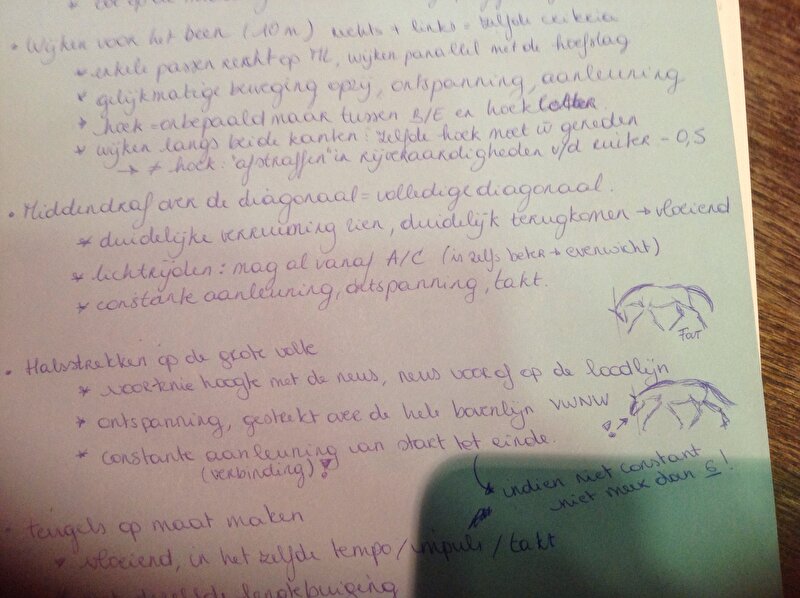 • Wijken voor het been (10m) rechts + links = zelfde criteria
* enkele passen recht op ML, wijken parallel met de hoefslag
* gelijkmatige beweging opzij, ontspanning, aanleuning
* hoek = onbepaald maar tussen B/E en hoekletter
* wijken langs beide kanten: zelfde hoek moet w gereden
→ ≠ hoek: "afstraffen" in rijvaardigheden v/d ruiter - 0,5
• Middendraf over de diagonaal = volledige diagonaal.
* duidelijke verruiming zien, duidelijk terugkomen → vloeiend
* lichtrijden: mag al vanaf A/C (is zelfs beter → evenwicht)
* constante aanleuning, ontspanning, takt.
FOUT
• Halsstrekken op de grote volte
* voorknie hoogte met de neus, neus voor of op de loodlijn
* ontspanning, gestrekt over de hele bovenlijn VWNW
* constante aanleuning van start tot einde.
(verbinding)!
* indien niet constant
niet meer dan 5!
• Teugels op maat maken
* vloeiend, in het zelfde tempo/impuls/takt
lengtebuiging